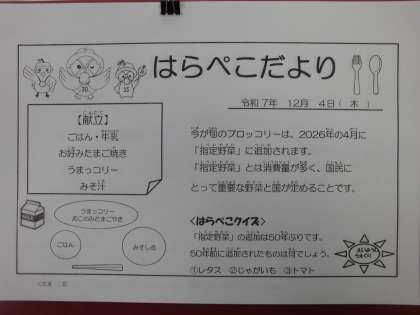 はらぺこだより
令和７年　12月　4日（　木　）
【献立】
ごはん・牛乳
お好みたまご焼き
うまっコリー
みそ汁
今が旬のブロッコリーは、2026年の4月に
「指定野菜」に追加されます。
「指定野菜」とは消費量が多く、国民に
とって重要な野菜と国が定めることです。
うまっコリー
おこのみたまごやき
ごはん
みそしる
<はらぺこクイズ>
「指定野菜」の追加は50年ぶりです。
50年前に追加されたものは何でしょう。
①レタス　②じゃがいも　③トマト